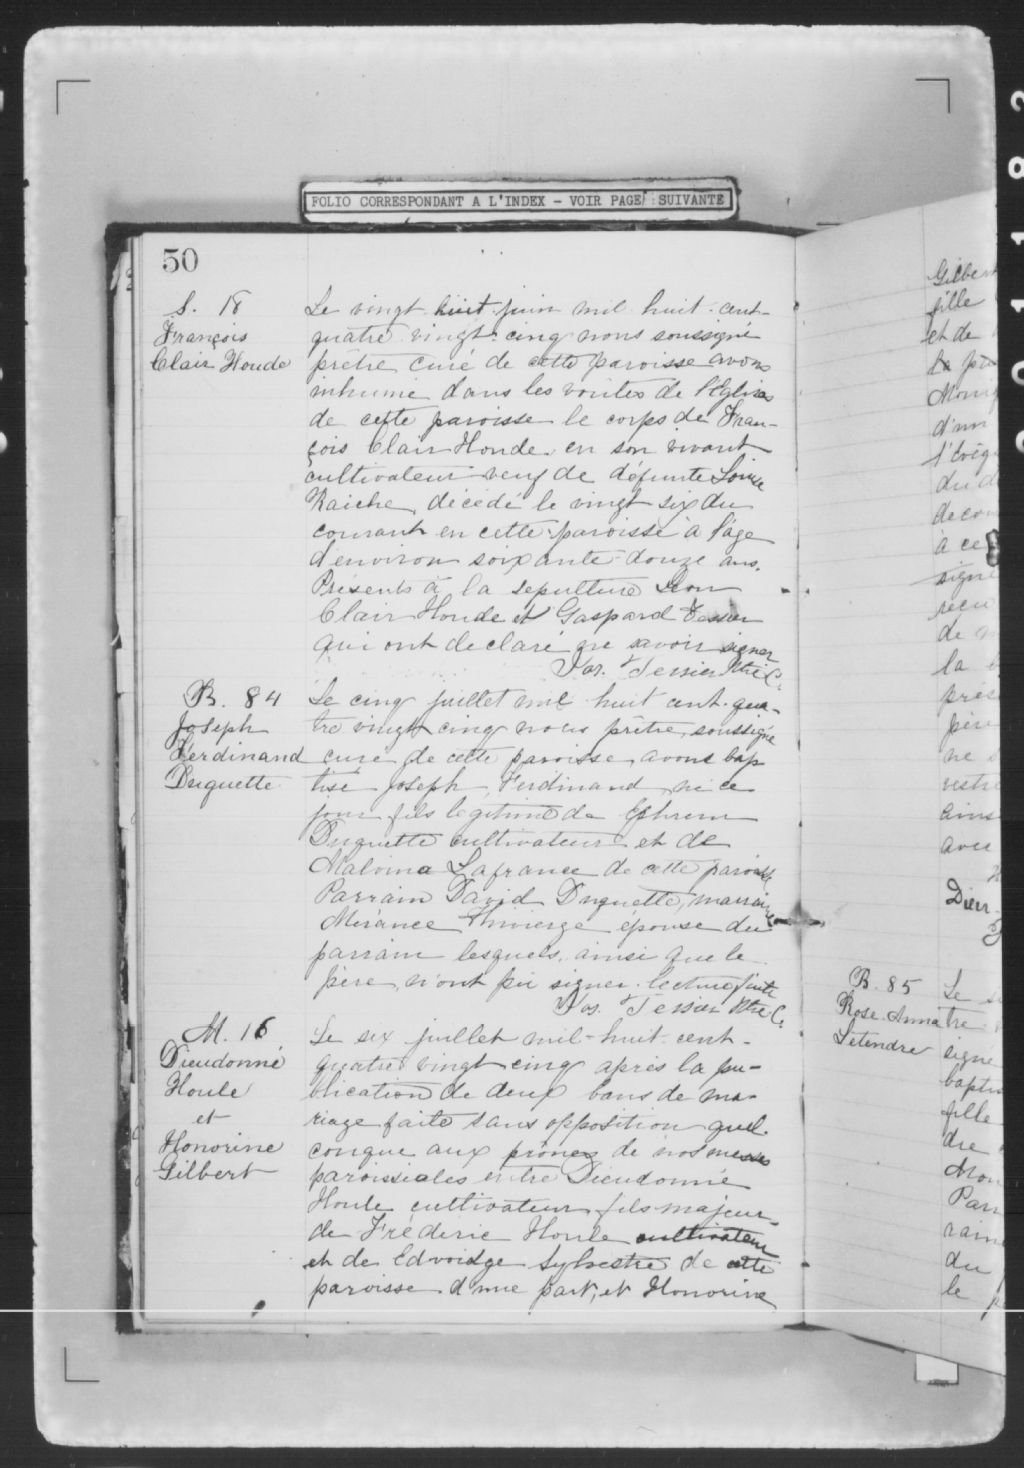 FOLIO CORRESPONDANT A L'INDEX - VOIR PAGE SUIVANTE
50
S. 18
François
Clair Houde
Le vingt huit juin mil huit cent
quatre vingt cinq nous soussigné
prêtre curé de cette paroisse avons
inhumé dans les voutes de l'Eglise
de cette paroisse le corps de Fran-
çois Clair Houde en son vivant
cultivateur veuf de défunte Louise
Raiche, décédé le vingt six du
courant en cette paroisse à l'age
d'environ soixante douze ans.
Présents à la sepulture Léon
Clair Houde et Gaspard Tessier
qui ont declaré ne savoir signer
Jos. Tessier Ptre C.
B. 84
Joseph
Ferdinand
Duquette
Le cinq juillet mil huit cent qua-
tre vingt cinq nous prêtre soussigné
curé de cette paroisse avons bap
tisé Joseph Ferdinand, né ce
jour fils legitime de Ephrem
Duquette cultivateur et de
Malvina Lafrance de cette paroisse
Parrain David Duquette, marraine
Mérance Thivierge épouse du
parrain lesquels, ainsi que le
père, n'ont pu signer. lecture faite
Jos. Tessier Ptre C.
M. 16
Dieudonné
Houle
et
Honorine
Gilbert
Le six juillet mil-huit-cent-
quatre vingt cinq après la pu-
blication de deux bans de ma-
riage faite sans opposition quel-
conque aux prônes de nos messes
paroissiales entre Dieudonné
Houle cultivateur fils majeur
de Fréderic Houle cultivateur
et de Edvoidge Sylvestre de cette
paroisse d'une part, et Honorine
Gilbert
fille
et de
la
d'un
du
à ce
signé
reçu
de
la
père
ne
ains
avec
Dieu-
B. 85
Rose-Anna
Letendre
Le
tre
signé
baptis
fille
dre
Mon
Parr
raine
du
le